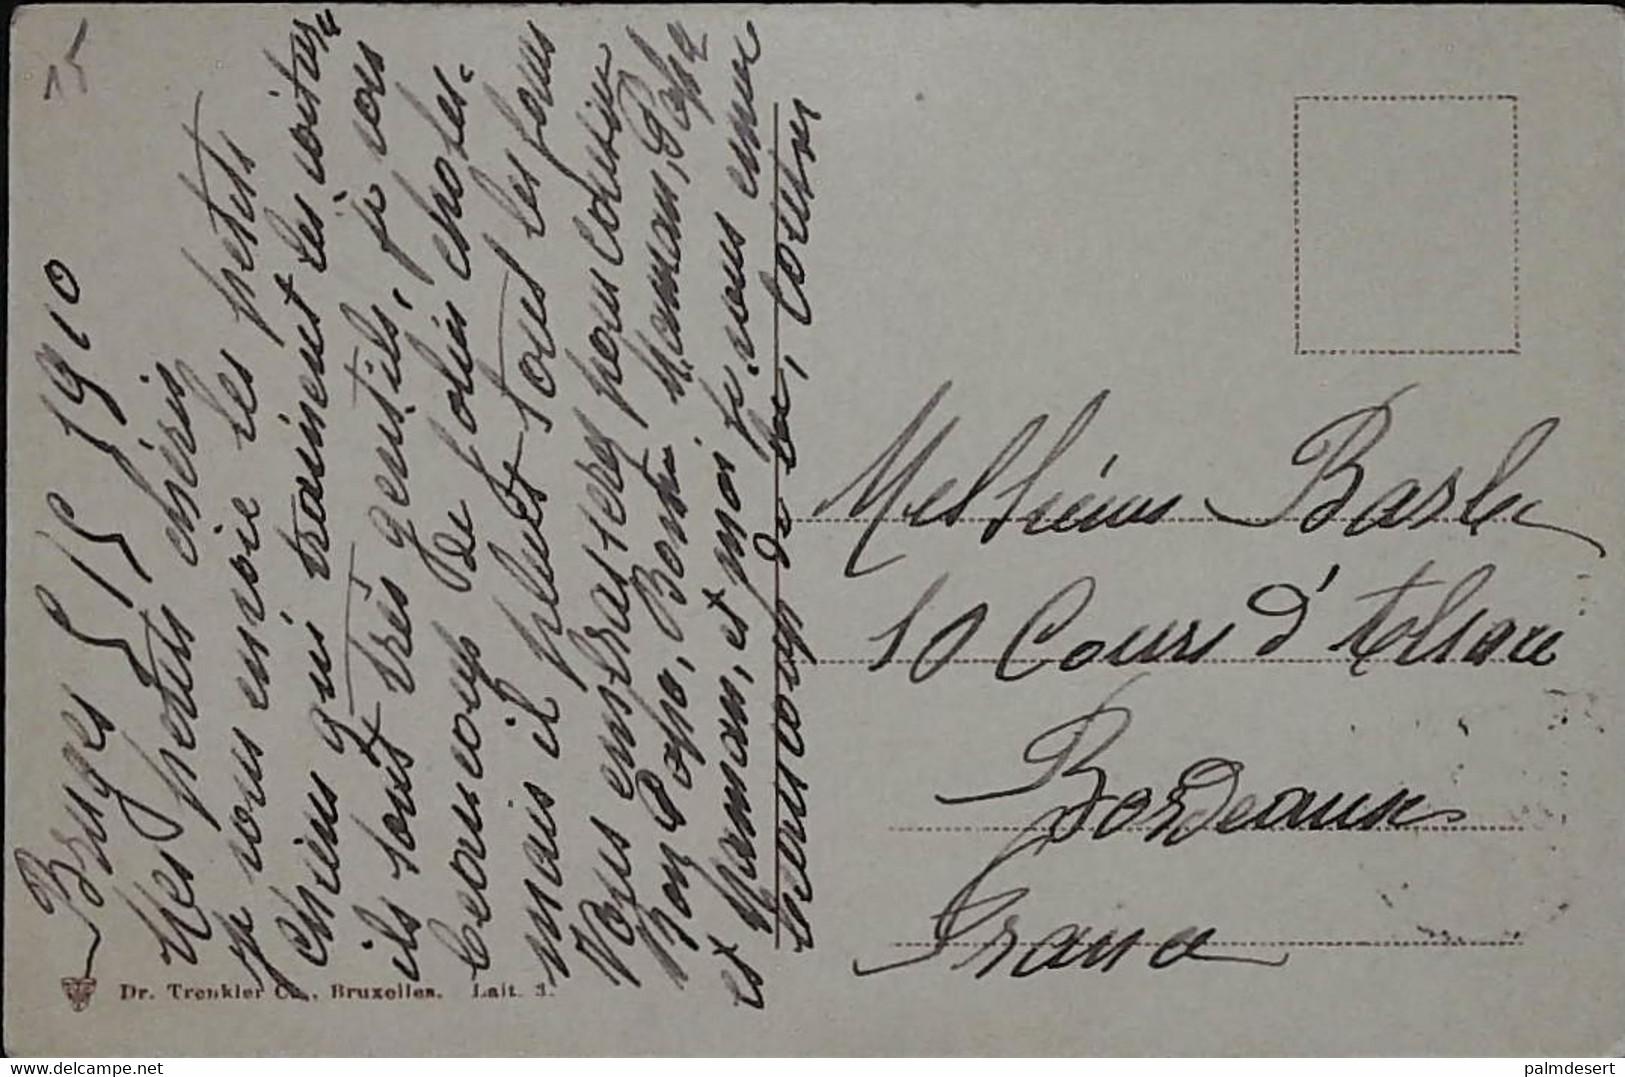 15
Bruges 5/5/1910
Mes petits chéris
je vous envoie les petits
chiens qui trainent les voitures
ils sont très gentils, je vois
beaucoup de jolies choses.
mais il pleut tous les jours
Vous embrasserez pour cousine
Bon Papa, Bonne Maman, Papa
et Maman, et moi je vous envoie
beaucoup de
Messieurs Basle
10 Cours d'Alsace
Bordeaux
France
Dr. Trenkler Co., Bruxelles. Lait. 3.
delcampe.net
palmdesert